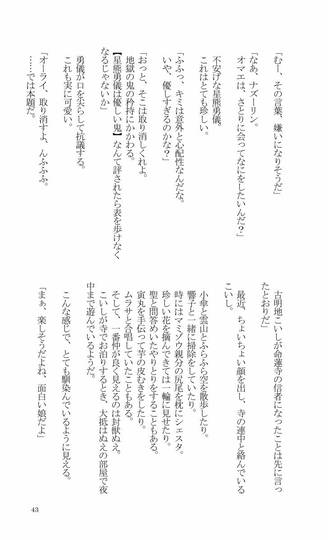 「むー、その言葉、嫌いになりそうだ」
「なあ、ナズーリン。
オマエは、さとりに会ってなにをしたいんだ?」
不安げな星熊勇儀。
これはとても珍しい。
「ふふっ、キミは意外と心配性なんだな。
いや、優しすぎるのかな?」
「おっと、そこは取り消しくれよ。
地獄の鬼の矜持にかかわる。
【星熊勇儀は優しい鬼】なんて評されたら表を歩けなく
なるじゃないか」
勇儀が口を尖らして抗議する。
これも実に可愛い。
「オーライ、取り消すよ、んふふふ。
……では本題だ。
古明地こいしが命蓮寺の信者になったことは先に言っ
たとおりだ」
最近、ちょいちょい顔を出し、寺の連中と絡んでいる
こいし。
小傘と雲山とふらふら空を散歩したり。
響子と一緒に掃除をしていたり。
時にはマミゾウ親分の尻尾を枕にシェスタ。
珍しい花を摘んできては一輪に見せたり。
聖と問答めいたやりとりをすることもある。
寅丸を手伝って芋の皮むきをしたり。
ムラサと合唱していたこともある。
そして、一番仲が良く見えるのは封獣ぬえ。
こいしが寺でお泊りするとき、大抵はぬえの部屋で夜
中まで遊んでいるようだ。
こんな感じで、とても馴染んでいるように見える。
「まぁ、楽しそうだよね、面白い娘だよ」
43